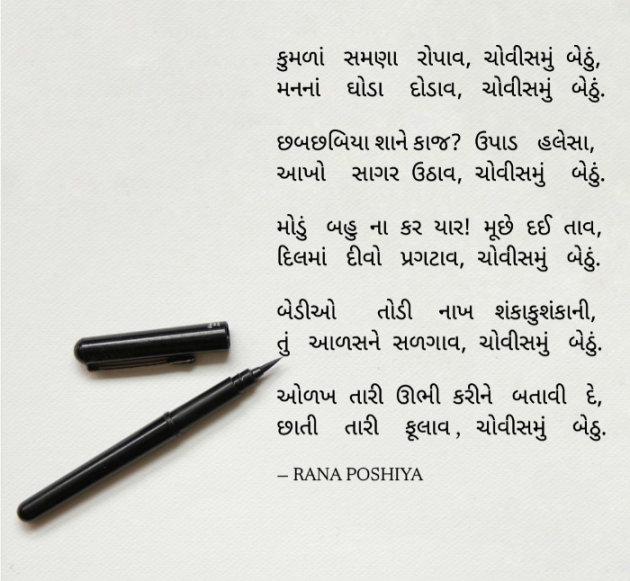 કુમળાં સમણા રોપાવ, ચોવીસમું બેઠું,
મનનાં ઘોડા દોડાવ, ચોવીસમું બેઠું.
છબછબિયા શાને કાજ? ઉપાડ હલેસા,
આખો સાગર ઉઠાવ, ચોવીસમું બેઠું.
મોડું બહુ ના કર યાર! મૂછે દઈ તાવ,
દિલમાં દીવો પ્રગટાવ, ચોવીસમું બેઠું.
બેડીઓ તોડી નાખ શંકાકુશંકાની,
તું આળસને સળગાવ, ચોવીસમું બેઠું.
ઓળખ તારી ઊભી કરીને બતાવી દે,
છાતી તારી ફૂલાવ , ચોવીસમું બેઠુ.
– RANA POSHIYA